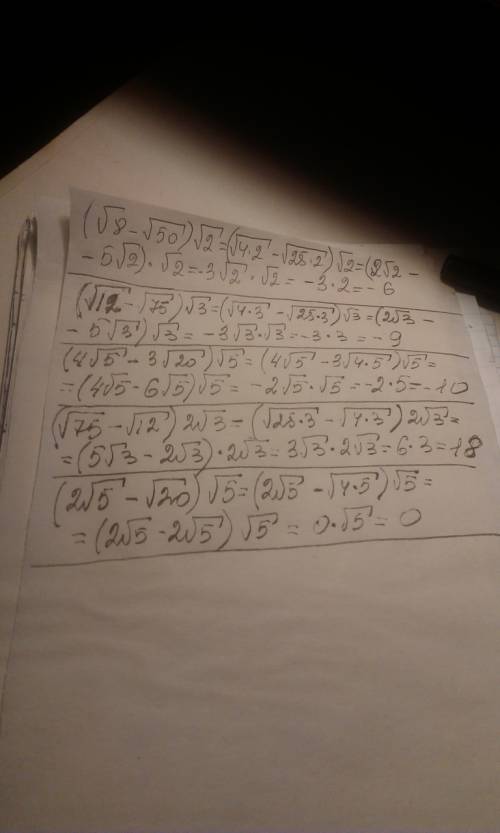 (√8 - √50)√2 = (√4·2 - √25·2)√2 = (2√2 -
- 5√2)·√2 = -3√2·√2 = -3·2 = -6
(√12 - √75)√3 = (√4·3 - √25·3)√3 = (2√3 -
- 5√3)√3 = -3√3·√3 = -3·3 = -9
(4√5 - 3√20)√5 = (4√5 - 3√4·5)√5 =
= (4√5 - 6√5)√5 = -2√5·√5 = -2·5 = -10
(√75 - √12)2√3 = (√25·3 - √4·3)2√3 =
= (5√3 - 2√3)·2√3 = 3√3·2√3 = 6·3 = 18
(2√5 - √20)√5 = (2√5 - √4·5)√5 =
= (2√5 - 2√5)√5 = 0·√5 = 0